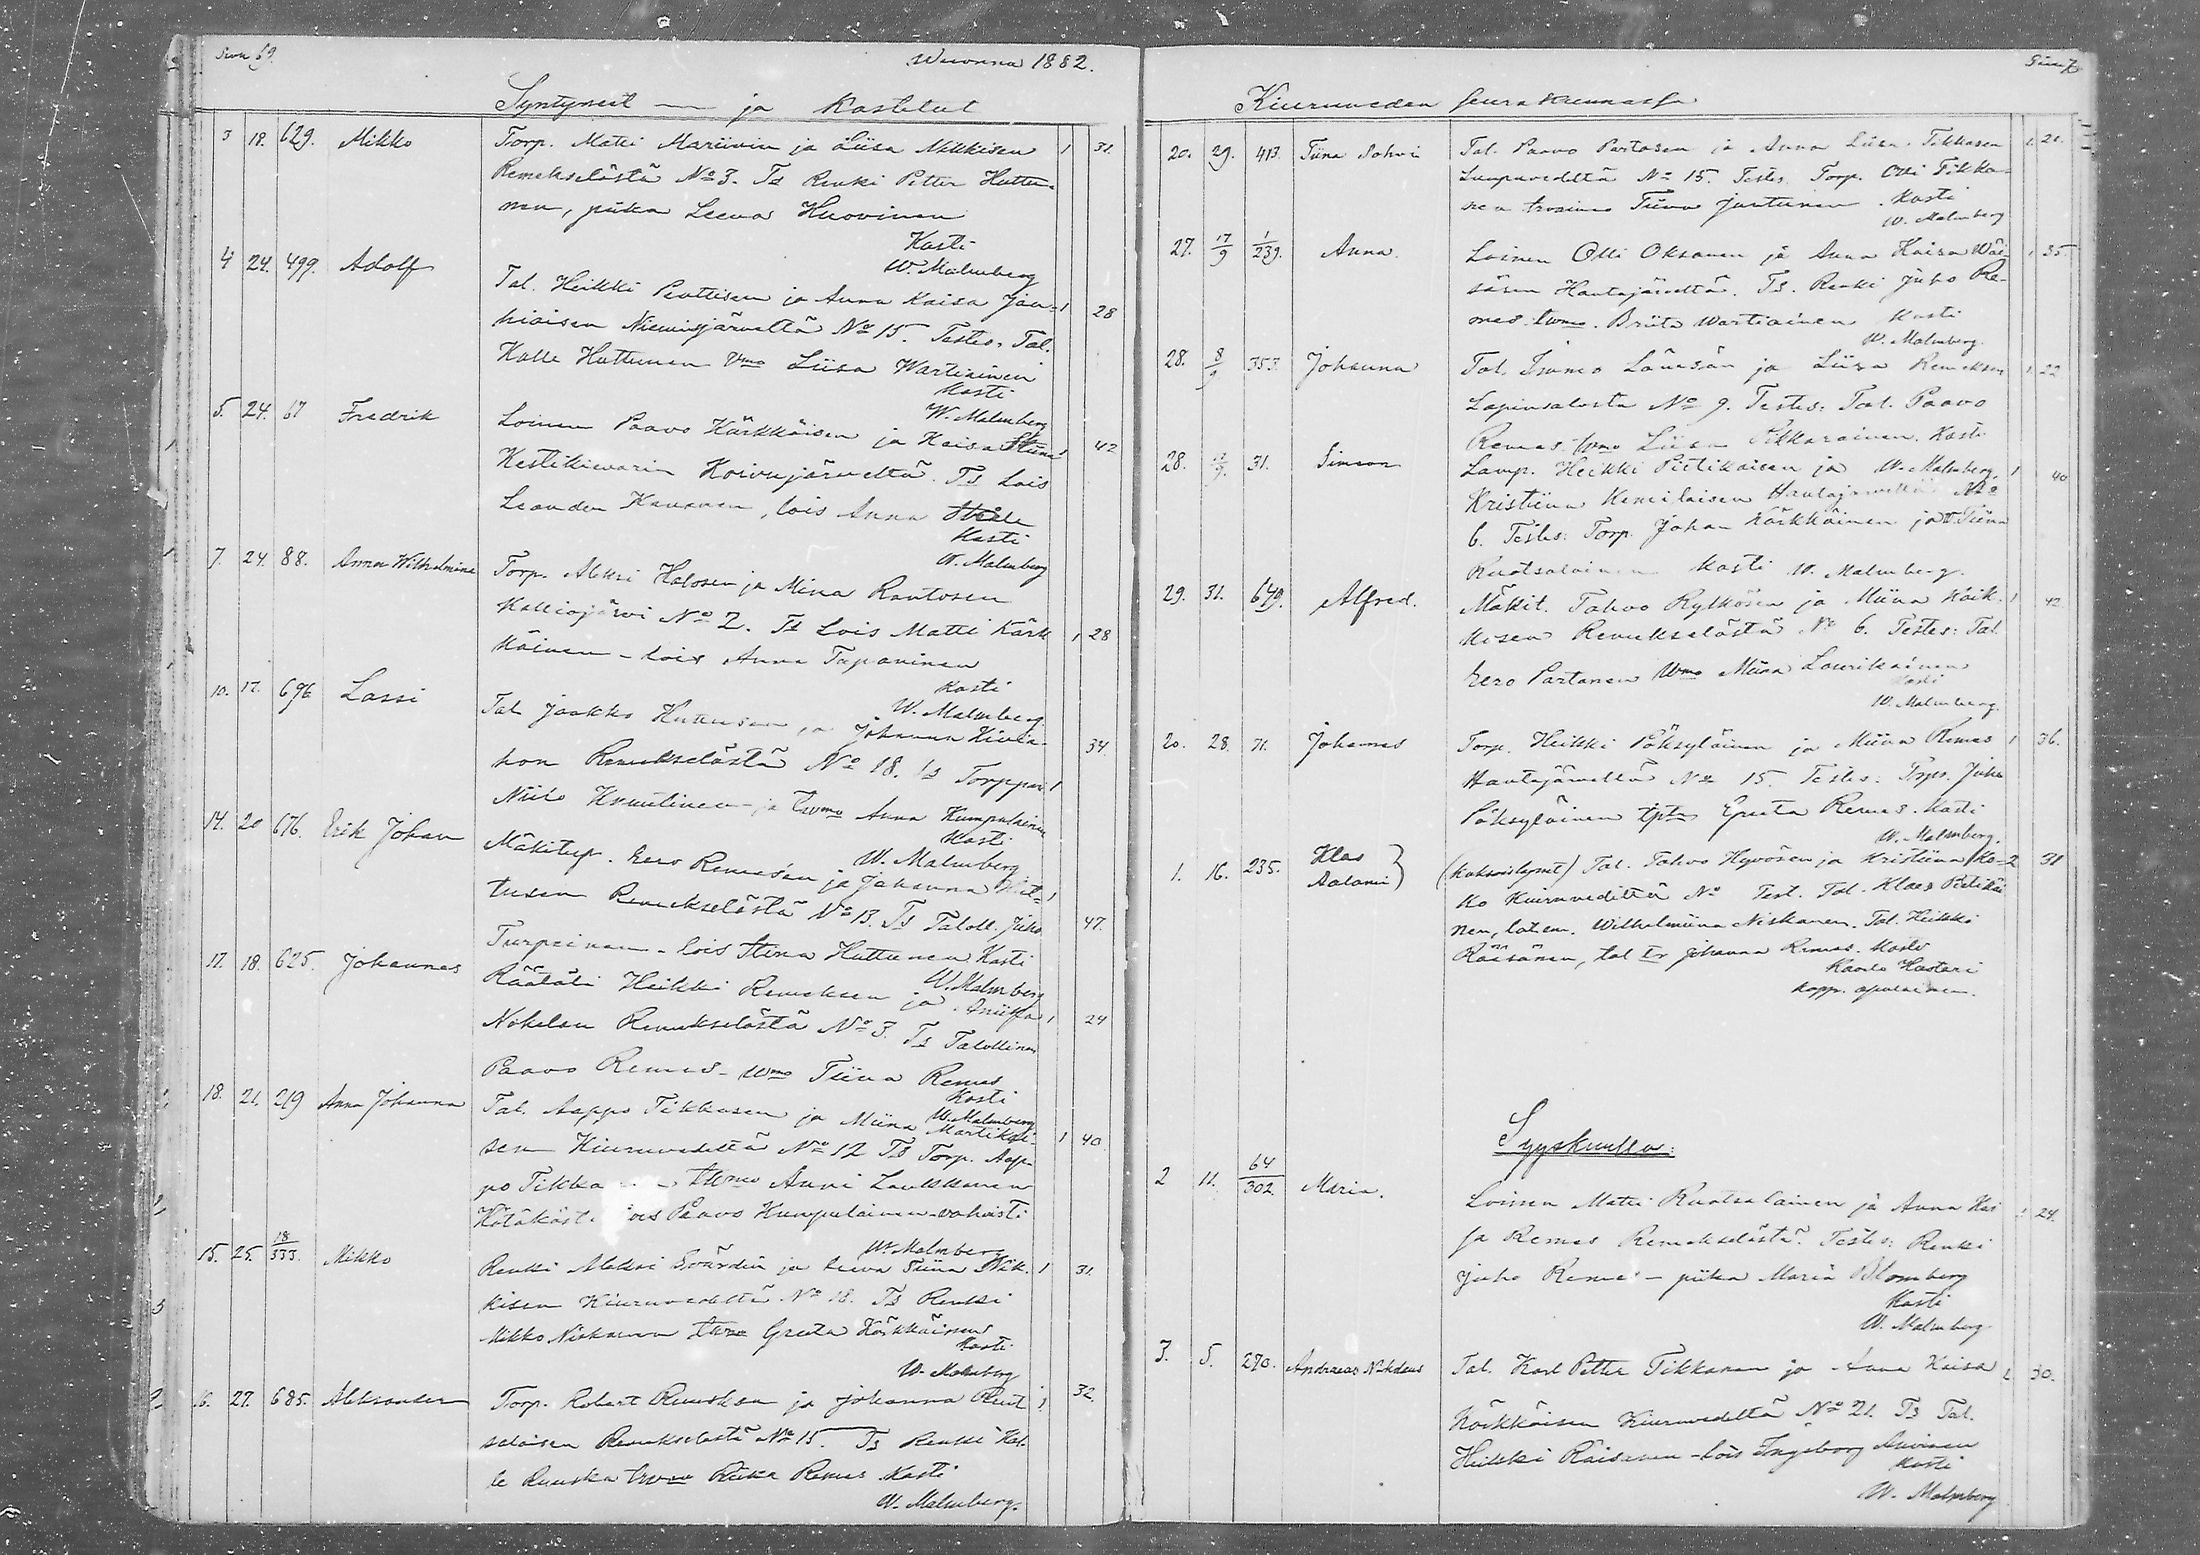 Siwu 69.
Wuonna 1882.
Syntyneet — ja Kastetut
3 18. 629. Mikko Torp. Matti Mariinin ja Liisa Nikkisen 1 31.
Remekselästä No 3. Ts Renki Petter Huttu-
nen, piika Leena Huovinen
Kasti
W. Malmberg
4 24. 499. Adolf Tal. Heikki Penttisen ja Anna Kaisa Jau- 1 28
hiaisen Niemisjärveltä No 15. Testes. Tal.
Kalle Huttunen Vmo Liisa Wartiainen
Kasti
W. Malmberg
5. 24. 67 Fredrik Loinen Paavo Kärkkäisen ja Kaisa Stiina 1 42
Kestikievarin Koivujärveltä. Ts Lois
Leander Kananen, lois Anna
Kasti
W. Malmberg
7. 24. 88. Anna Wilhelmina Torp. Aleksi Halosen ja Mina Rantosen
Kalliojärvi No 2. Ts Lois Matti Kärk 1 28
käinen - lois Anna Tapaninen
Kasti
W. Malmberg
10. 17. 696 Lassi Tal Jaakko Huttusen ja Johanna Kivia- 34.
hon Remekselästä No 18. Ts Torppari 1
Niilo ja tvmo Anna Kumpulainen
Kasti
W. Malmberg
14. 20 676. Erik Johan Mäkitup. Eero Remesen ja Johanna Hut- 1
tusen Remekselästä No 13. Ts Taloll. Juho 47.
Turpeinen - lois Stina Huttunen Kasti
W. Malmberg
17. 18. 625. Johannes Räätäli Heikki Remeksen ja 1 24
Nokelan Remekselästä No 3. Ts Talollinen
Paavo Remes - Wmo Tiina Remes
Kasti
W. Malmberg
18. 21. 219 Anna Johanna Tal. Aappo Tikkasen ja Miina Martikai-
sen Kiuruvedeltä No 12 Ts Torp. Aap- 1 40
po Tikka tvmo Anni Laukkanen
Hätäkast. Paavo Kumpulainen vahvisti
W. Malmberg
15. 25. 18/333. Mikko Renki Aleksi Svärdin ja Leena Tiina Nik- 1 31.
kisen Kiuruvedeltä No 18. Ts Renki
Mikko Niskanen Greeta Kärkkäinen
Kasti
W. Malmberg
16. 27. 685. Aleksander Torp. Robert Ruuskan ja Johanna Ruot 1 32.
salaisen Remekselästä No 15. Ts Renki Kal-
le Ruuska Riika Remes Kasti
W. Malmberg.
Kiuruveden seurakunnassa
20. 29. 413. Tiina Sohvi Tal. Paavo Partasen ja Anna Liisa Tikkasen 1 21.
Luupuvedeltä No 15. Testes. Torp. Olli Tikka-
nen Tiina Juntunen. Kasti
W. Malmberg
27. 17/9 1/239. Anna. Loinen Olli Oksanen ja Anna Kaisa Wäi- 1 35
säsen Hautajärveltä. Ts. Renki Juho Re-
mes tvmo. Briita Wartiainen Kasti
W. Malmberg.
28. 8/9 353. Johanna Tal. Länsän ja Liisa Remeksen 1 22
Lapinsalosta No 9. Testes: Tal. Paavo
Remes Vmo Liisa Pikkarainen. Kasti
W. Malmberg.
28. 31. Simeon Lamp. Heikki Pietikäisen ja 1 40
Kristiina Kemiläisen Hautajärveltä No
6. Testes: Torp. Johan Kärkkäinen ja Tiina
Ruotsalainen Kasti W. Malmberg.
29. 31. 649. Alfred. Mäkit. Tahvo Rytkösen ja Miina Kaik- 1 42
kosen Remekselästä No 6. Testes: Tal.
Eero Partanen Wmo Miina Laurikainen
Kasti
W. Malmberg.
20. 28. 71. Johannes Torp. Heikki Pöksyläinen ja Miina Remes 1 36.
Hautajärveltä No 15 Testes: Torp. Juho
Pöksyläinen Greeta Remes. Kasti
W. Malmberg.
1. 16. 235. Klas
Aatami } (kaksoislapset) Tal. Tahvo Hyvösen ja Kristiina Ko- 2 31
ko Kiuruvedeltä No Test. Tal. Klaes Pietikäi
nen, Wilhelmiina Niskanen. Tal. Heikki
Räisänen, tal tr Johanna Remes. Kasti
Kaarlo Hastari
kapp. apulainen.
Syyskuulla:
2 11. 64/302. Maria. Loinen Matti Ruotsalainen ja Anna Kai 1 24.
sa Remes Remekselästä. Testes: Renki
Juho Remes — piika Maria Blomberg
Kasti
W. Malmberg
3. 5. 270. Andreas Nikolaus Tal. Karl Petter Tikkanen ja Anna Kaisa 1 30.
Kärkkäisen Kiuruvedeltä No 21. Ts Tal.
Heikki Räisänen - lois Ingeborg
Kasti
W. Malmberg